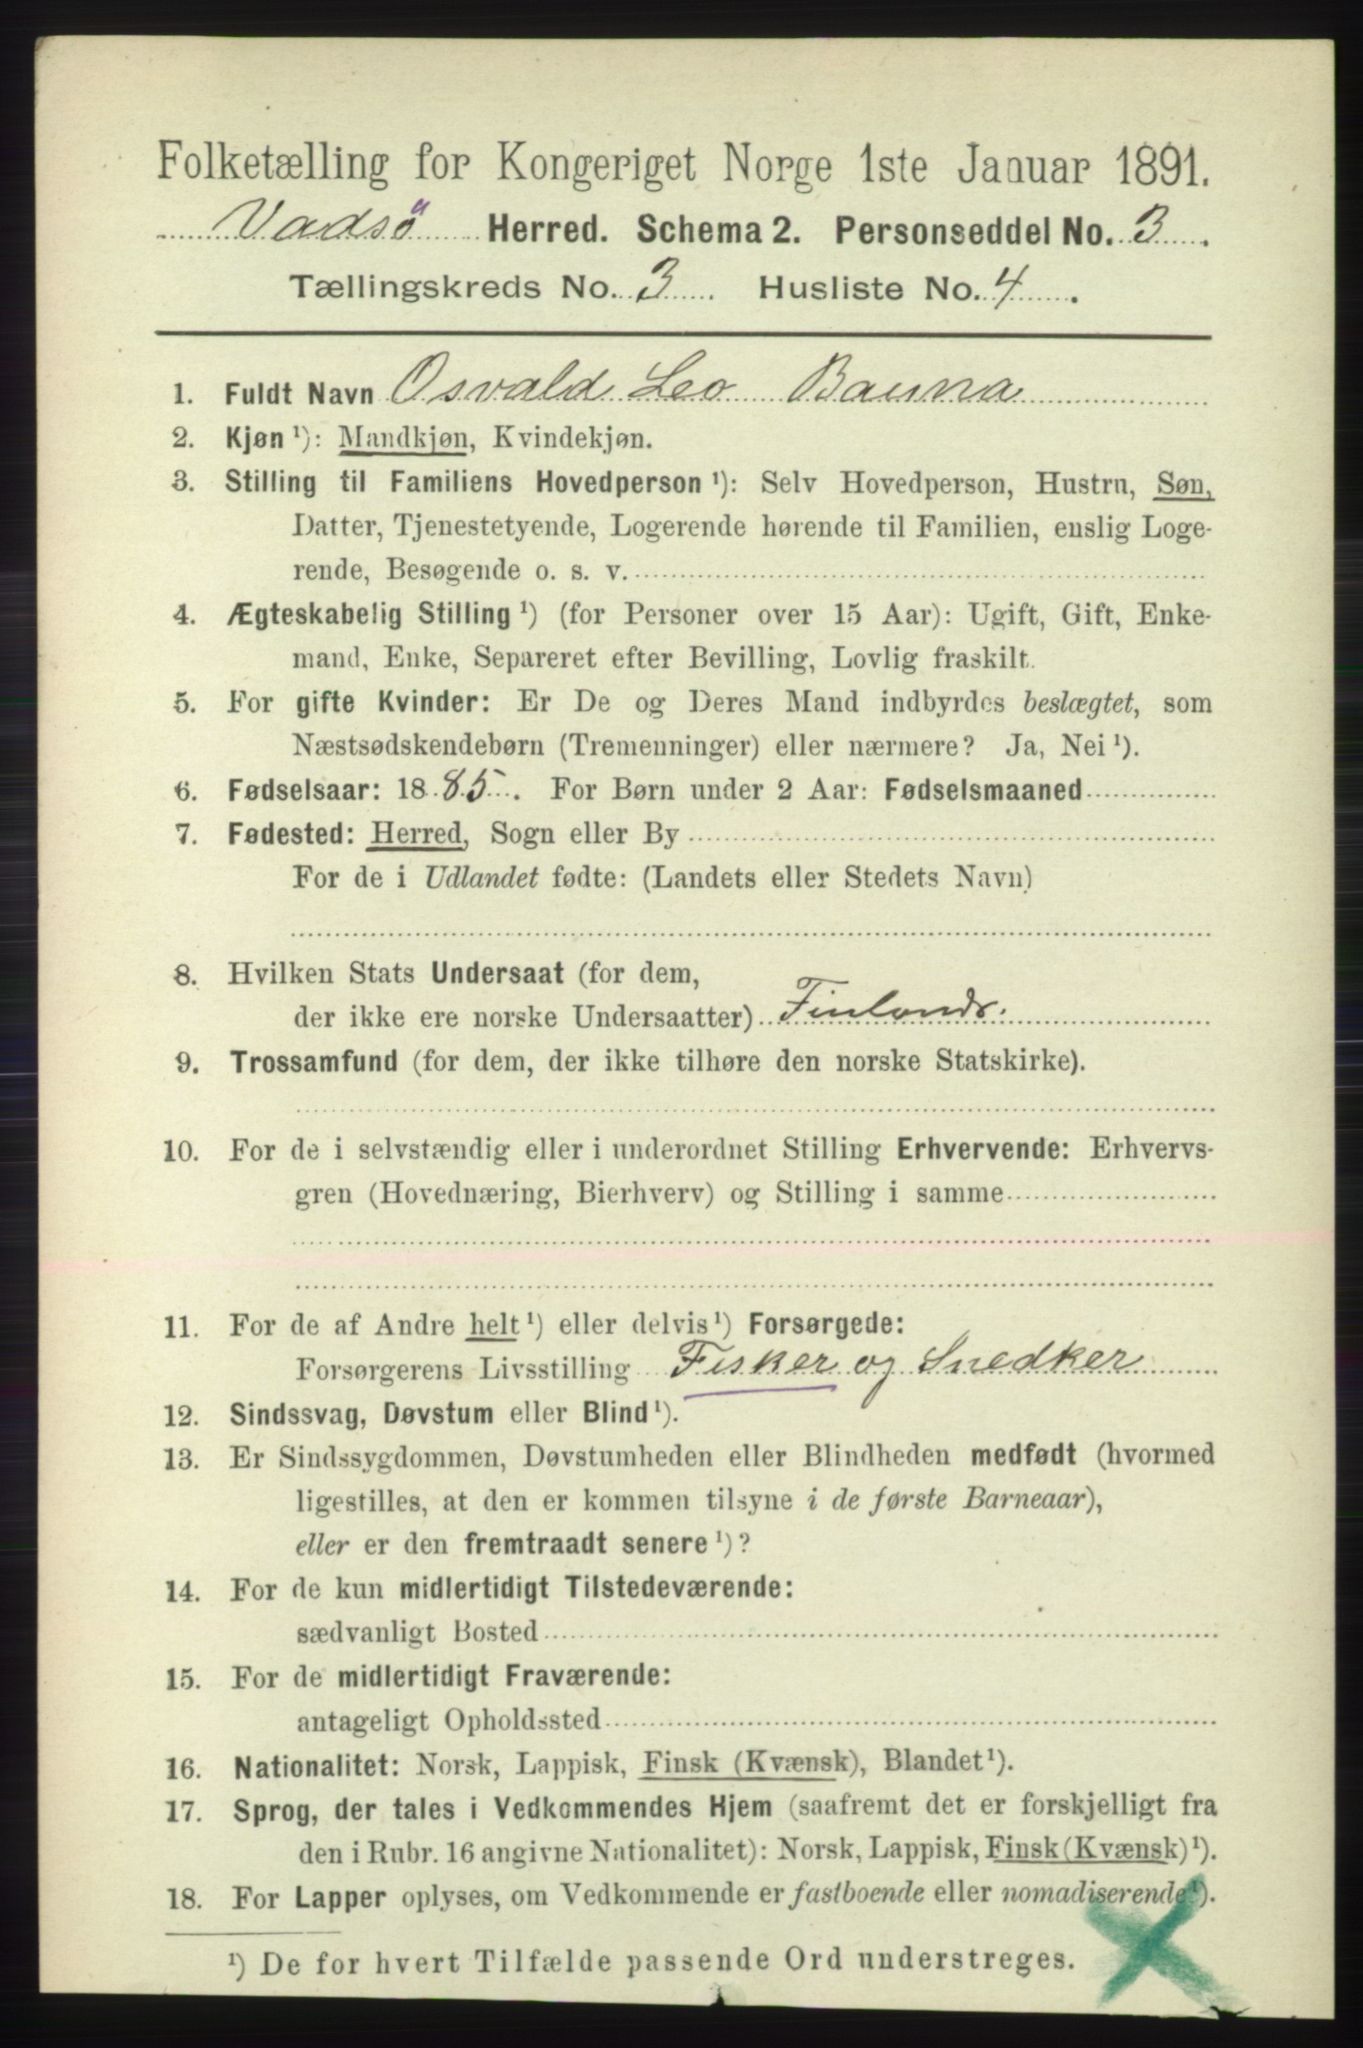 Folketælling for Kongeriget Norge 1ste Januar 1891.
Vadsø Herred. Schema 2. Personseddel No. 3.
Tællingskreds No. 3. Husliste No. 4.
1. Fuldt Navn Osvald Leo Bauna
2. Kjøn ¹): Mandkjøn, Kvindekjøn.
3. Stilling til Familiens Hovedperson ¹): Selv Hovedperson, Hustru, Søn,
Datter, Tjenestetyende, Logerende hørende til Familien, enslig Loge-
rende, Besøgende o. s. v.
4. Ægteskabelig Stilling ¹) (for Personer over 15 Aar): Ugift, Gift, Enke-
mand, Enke, Separeret efter Bevilling, Lovlig fraskilt.
5. For gifte Kvinder: Er De og Deres Mand indbyrdes beslægtet, som
Næstsødskendebørn (Tremenninger) eller nærmere? Ja, Nei ¹).
6. Fødselsaar: 1885. For Børn under 2 Aar: Fødselsmaaned
7. Fødested: Herred, Sogn eller By
For de i Udlandet fødte: (Landets eller Stedets Navn)
8. Hvilken Stats Undersaat (for dem,
der ikke ere norske Undersaatter) Finlands.
9. Trossamfund (for dem, der ikke tilhøre den norske Statskirke).
10. For de i selvstændig eller i underordnet Stilling Erhvervende: Erhvervs-
gren (Hovednæring, Bierhverv) og Stilling i samme
11. For de af Andre helt ¹) eller delvis ¹) Forsørgede:
Forsørgerens Livsstilling Fisker og Snedker
12. Sindssvag, Døvstum eller Blind ¹).
13. Er Sindssygdommen, Døvstumheden eller Blindheden medfødt (hvormed
ligestilles, at den er kommen tilsyne i de første Barneaar),
eller er den fremtraadt senere ¹)?
14. For de kun midlertidigt Tilstedeværende:
sædvanligt Bosted
15. For de midlertidigt Fraværende:
antageligt Opholdssted
16. Nationalitet: Norsk, Lappisk, Finsk (Kvænsk), Blandet ¹).
17. Sprog, der tales i Vedkommendes Hjem (saafremt det er forskjelligt fra
den i Rubr. 16 angivne Nationalitet): Norsk, Lappisk, Finsk (Kvænsk) ¹).
18. For Lapper oplyses, om Vedkommende er fastboende eller nomadiserende ¹).
¹) De for hvert Tilfælde passende Ord understreges.